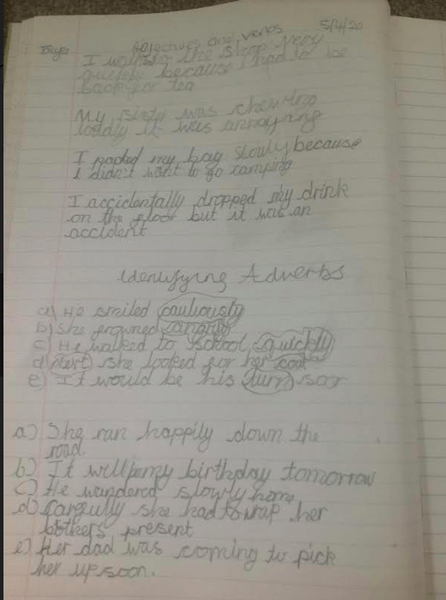 adjectives and verbs 5/4/20
I the shop very
quickly because I had to be
back for tea
My sister was chewing
loudly it was annoying
I packed my bag slowly because
I didn't want to go camping
I accidentally dropped my drink
on the floor but it was an
accident
Identifying Adverbs
a) He smiled cautiously
b) She frowned angrily
c) He walked to school quickly
d) she looked for her coat
e) It would be his turn
a) She ran happily down the
road
b) It will be my birthday tomorrow
c) He wandered slowly home
d) Carefully she had to wrap her
brothers present
e) Her dad was coming to pick
her up soon.